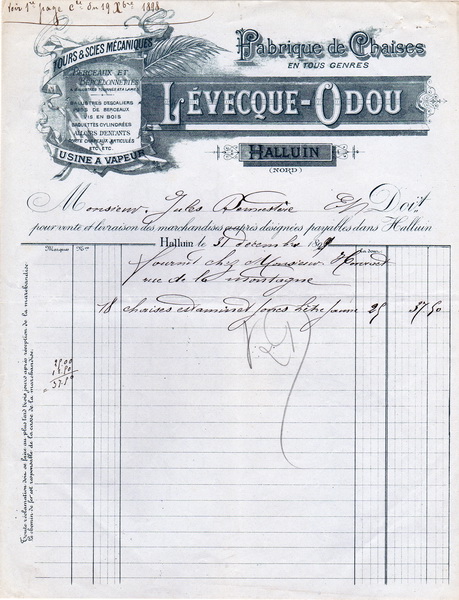 Voir 1re page Cte du 19 Xbre 1898
TOURS & SCIES MÉCANIQUES
BERCEAUX ET
BERCELONNETTES
BALUSTRES D'ESCALIERS
VIS EN BOIS
BAGUETTES CYLINDRÉES
ETC. ETC.
USINE A VAPEUR
Fabrique de Chaises
EN TOUS GENRES
LÉVECQUE-ODOU
HALLUIN
(NORD)
Monsieur Jules E/V Doit
pour vente et livraison des marchandises ci-après désignées payables dans Halluin
Halluin le 31 décembre 189
Marques Nos
fourni chez Monsieur
rue de la montagne
18 chaises estaminet hêtre jaune 25 37.50
25.00
12.50
37.50
Toute réclamation doit se faire au plus tard trois jours après réception de la marchandise.
Le chemin de fer est responsable de la casse de la marchandise.